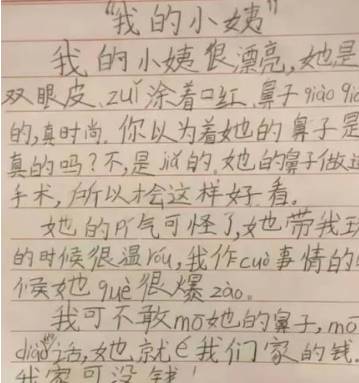 “我的小姨”
我的小姨很漂亮,她是
双眼皮、zuǐ涂着口红,鼻子qiào qiào
的,真时尚.你以为着她的鼻子是
真的吗?不,是jiǎ的.她的鼻子做过
手术,所以才会这样好看。
她的pí气可怪了,她带我玩
的时候很温róu,我作cuò事情的
候她què很爆zào。
我可不敢mō她的鼻子,mō
diào话,她就é我们家的钱.
我家可没钱!